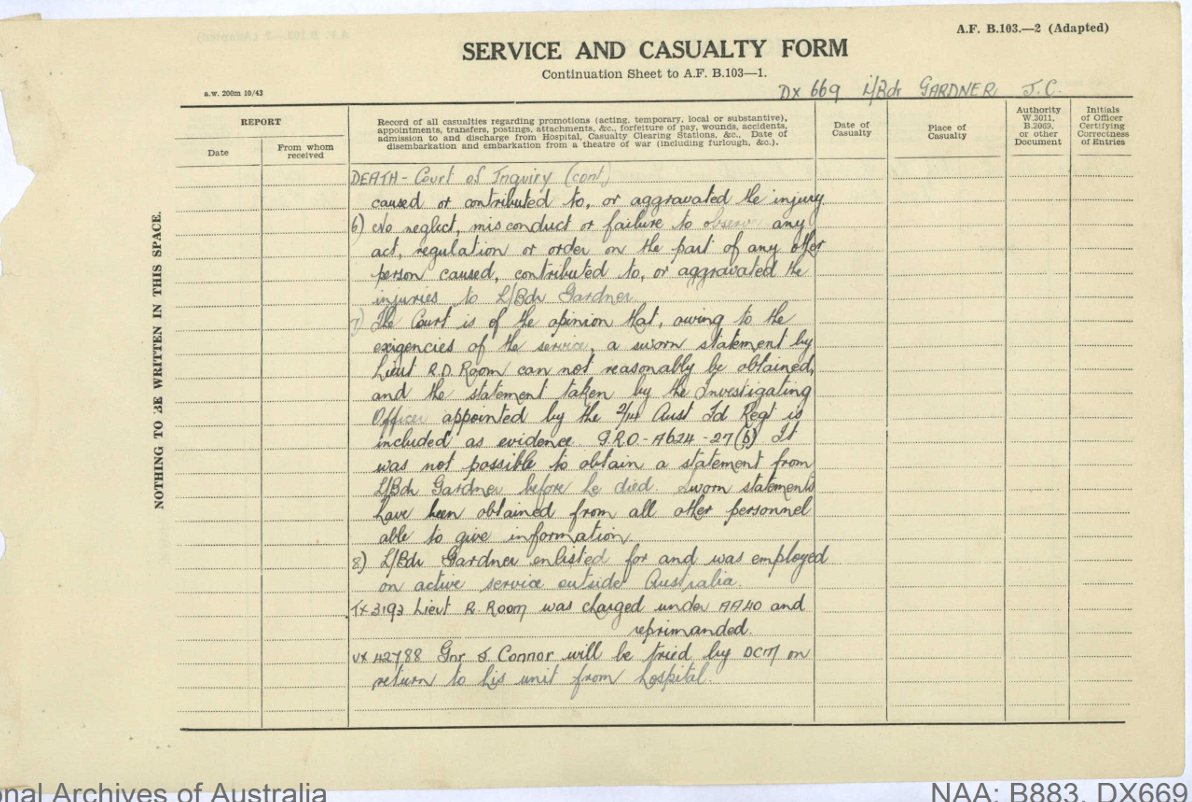 A.F. B.103.—2 (Adapted)
SERVICE AND CASUALTY FORM
Continuation Sheet to A.F. B.103—1.
a.w. 200m 10/43
DX 669 L/Bdr GARDNER, J.C.
REPORT
Date
From whom received
Record of all casualties regarding promotions (acting, temporary, local or substantive),
appointments, transfers, postings, attachments, &c., forfeiture of pay, wounds, accidents,
admission to and discharge from Hospital, Casualty Clearing Stations, &c., Date of
disembarkation and embarkation from a theatre of war (including furlough, &c.).
Date of Casualty
Place of Casualty
Authority W.3011, B.2069, or other Document
Initials of Officer Certifying Correctness of Entries
NOTHING TO BE WRITTEN IN THIS SPACE.
DEATH - Court of Inquiry (cont.)
caused or contributed to, or aggravated the injury
6) No neglect, misconduct or failure to observe any
act, regulation or order on the part of any other
person caused, contributed to, or aggravated the
injuries to L/Bdr Gardner.
7) The Court is of the opinion that, owing to the
exigencies of the service, a sworn statement by
Lieut R.D. Room can not reasonably be obtained,
and the statement taken by the Investigating
Officer appointed by the 2/14 Aust Fd Regt is
included as evidence. GRO - A624 - 27(b) It
was not possible to obtain a statement from
L/Bdr Gardner before he died. Sworn statements
have been obtained from all other personnel
able to give information.
8) L/Bdr Gardner enlisted for and was employed
on active service outside Australia.
TX 3193 Lieut R. Room was charged under AA40 and
reprimanded.
VX 42788 Gnr J. Connor will be tried by DCM on
return to his unit from hospital.
onal Archives of Australia
NAA: B883, DX669